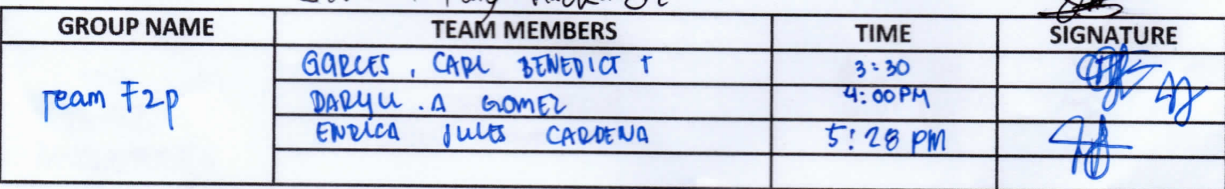 GROUP NAME TEAM MEMBERS TIME SIGNATURE
GARCES, CARL BENEDICT T 3:30
Team F2p DARYLL .A GOMEZ 4:00PM
ENRICA JULES CARDENA 5:28 PM